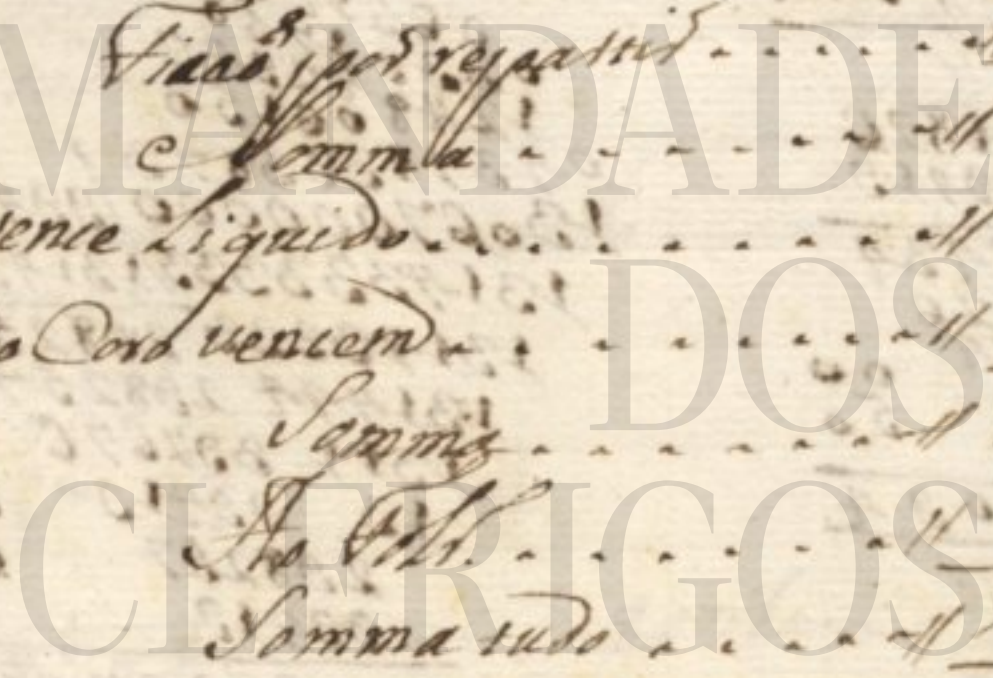 Ficaõ por repartir
Somma
vence Liquido
o Coro vencem
Somma
Ao
Somma tudo
MANDADE
DOS
CLERIGOS